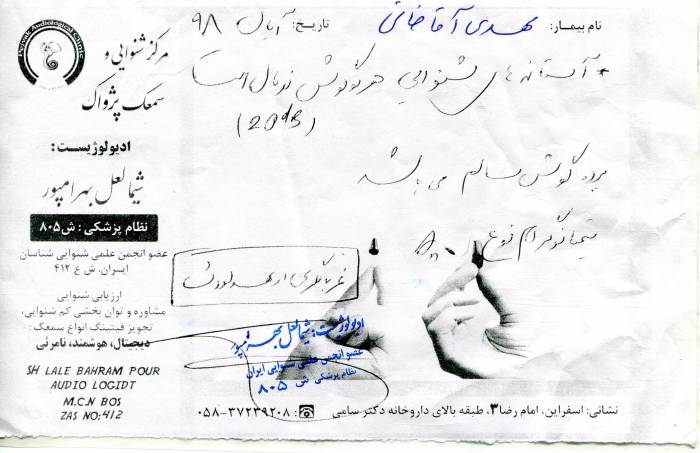 نام بیمار: مهدی آقاخانی تاریخ: آبان ۹۸
* آستانه های شنوایی هر دو گوش نرمال است
(20dB)
پرده گوش سالم می باشد
تمپانوگرام نوع An
غربالگری از نظر
Pejvak Audiological Clinic
مرکز شنوایی و
سمعک پژواک
ادیولوژیست:
شیما لعل بهرامپور
نظام پزشکی: ش۸۰۵
عضو انجمن علمی شنوایی شناسان
ایران. ش ع ۴۱۲
ارزیابی شنوایی
مشاوره و توان بخشی کم شنوایی،
تجویز فیتینگ انواع سمعک:
دیجیتال، هوشمند، نامرئی
SH LALE BAHRAM POUR
AUDIO LOGIDT
M.C.N BOS
ZAS NO:412
ادیولوژیست: شیما لعل بهرامپور
عضو انجمن علمی شنوایی ایران
نظام پزشکی ش ۸۰۵
نشانی: اسفراین، امام رضا ۳، طبقه بالای داروخانه دکتر سامی ☎: ۰۵۸-۳۷۲۳۹۲۰۸